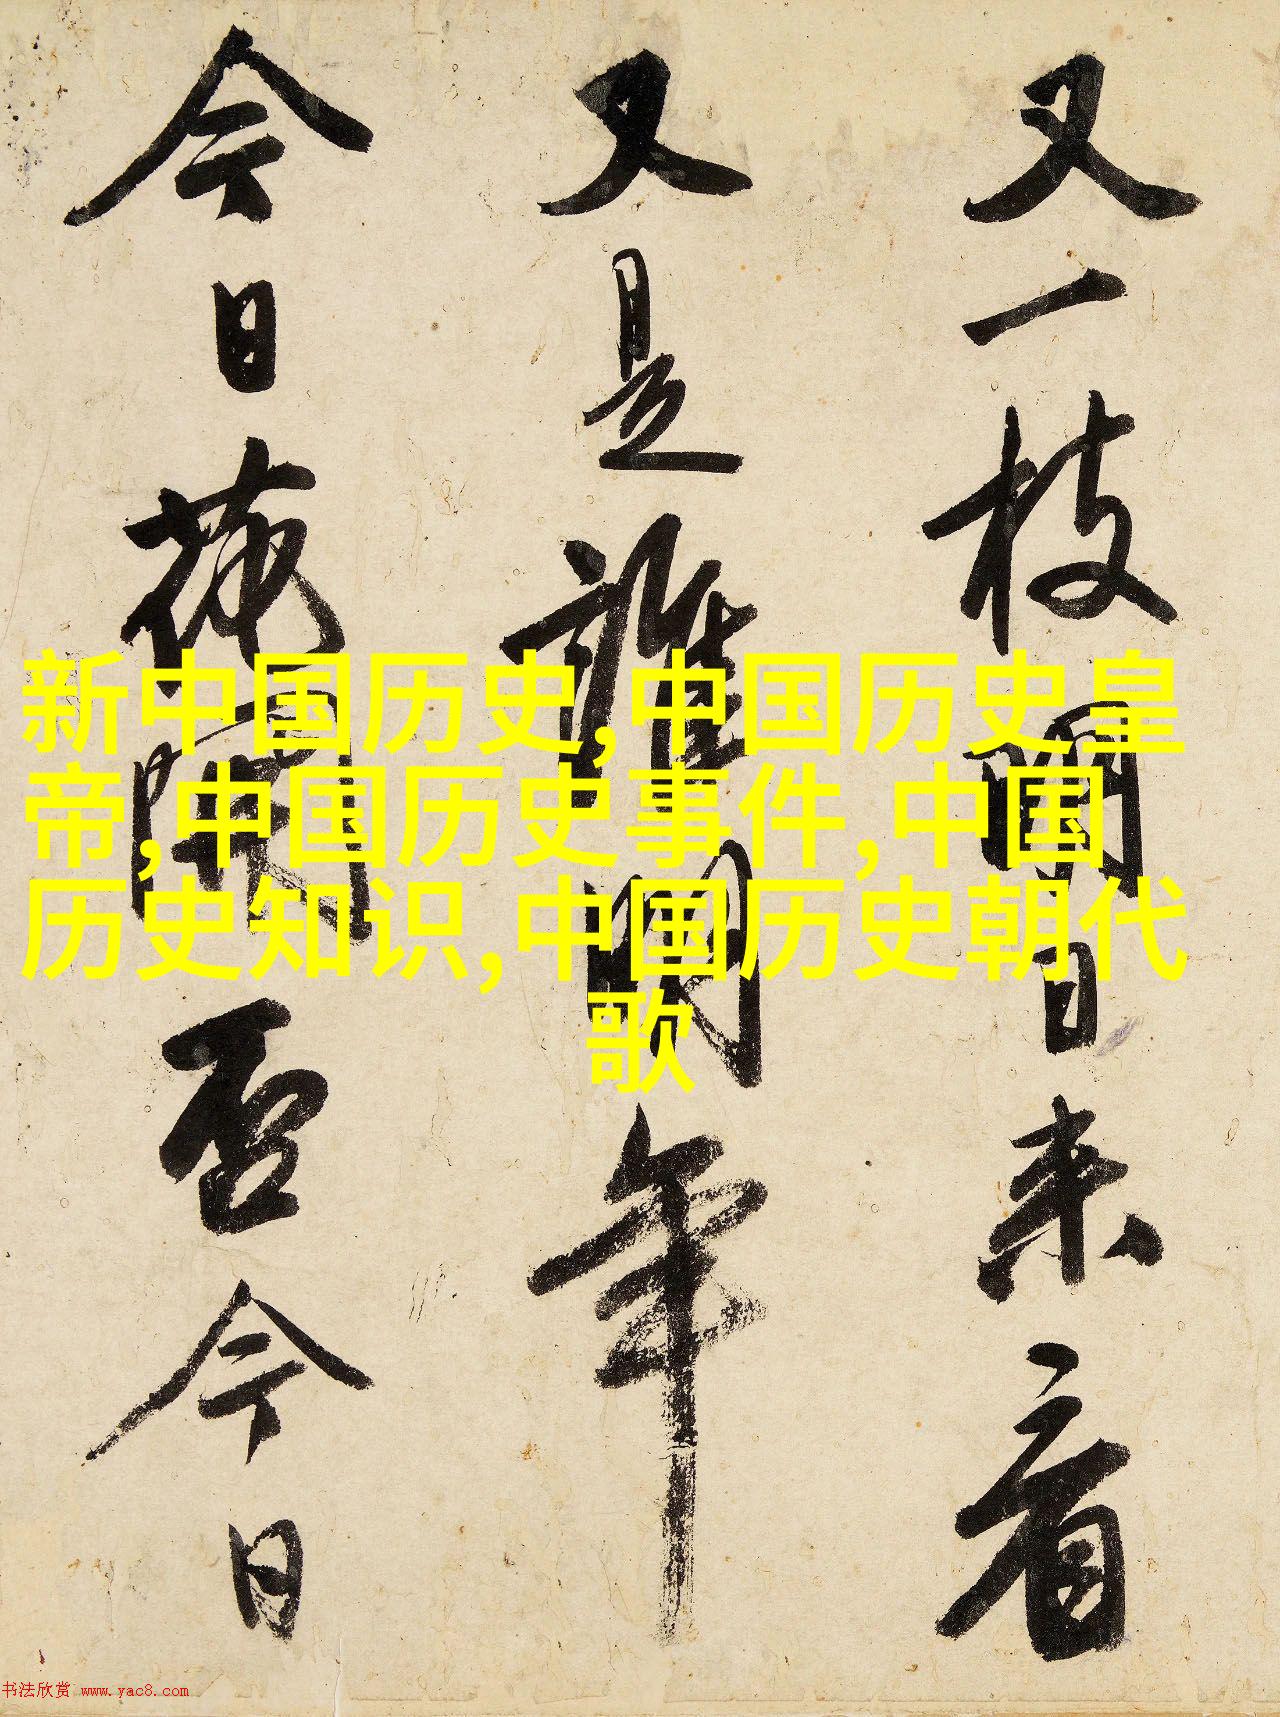 又一枝日来看
又是誰年
今日開否今日
新中国历史,中国历史皇
帝,中国历史事件,中国
历史知识,中国历史朝代
歌
书法欣赏 www.yac8.com